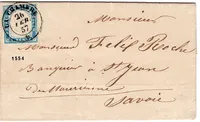 CHAMBERY
26
FEB
57
Monsieur
Monsieur Felix Roche
1554
Banquier à St Jean
de Maurienne
Savoie